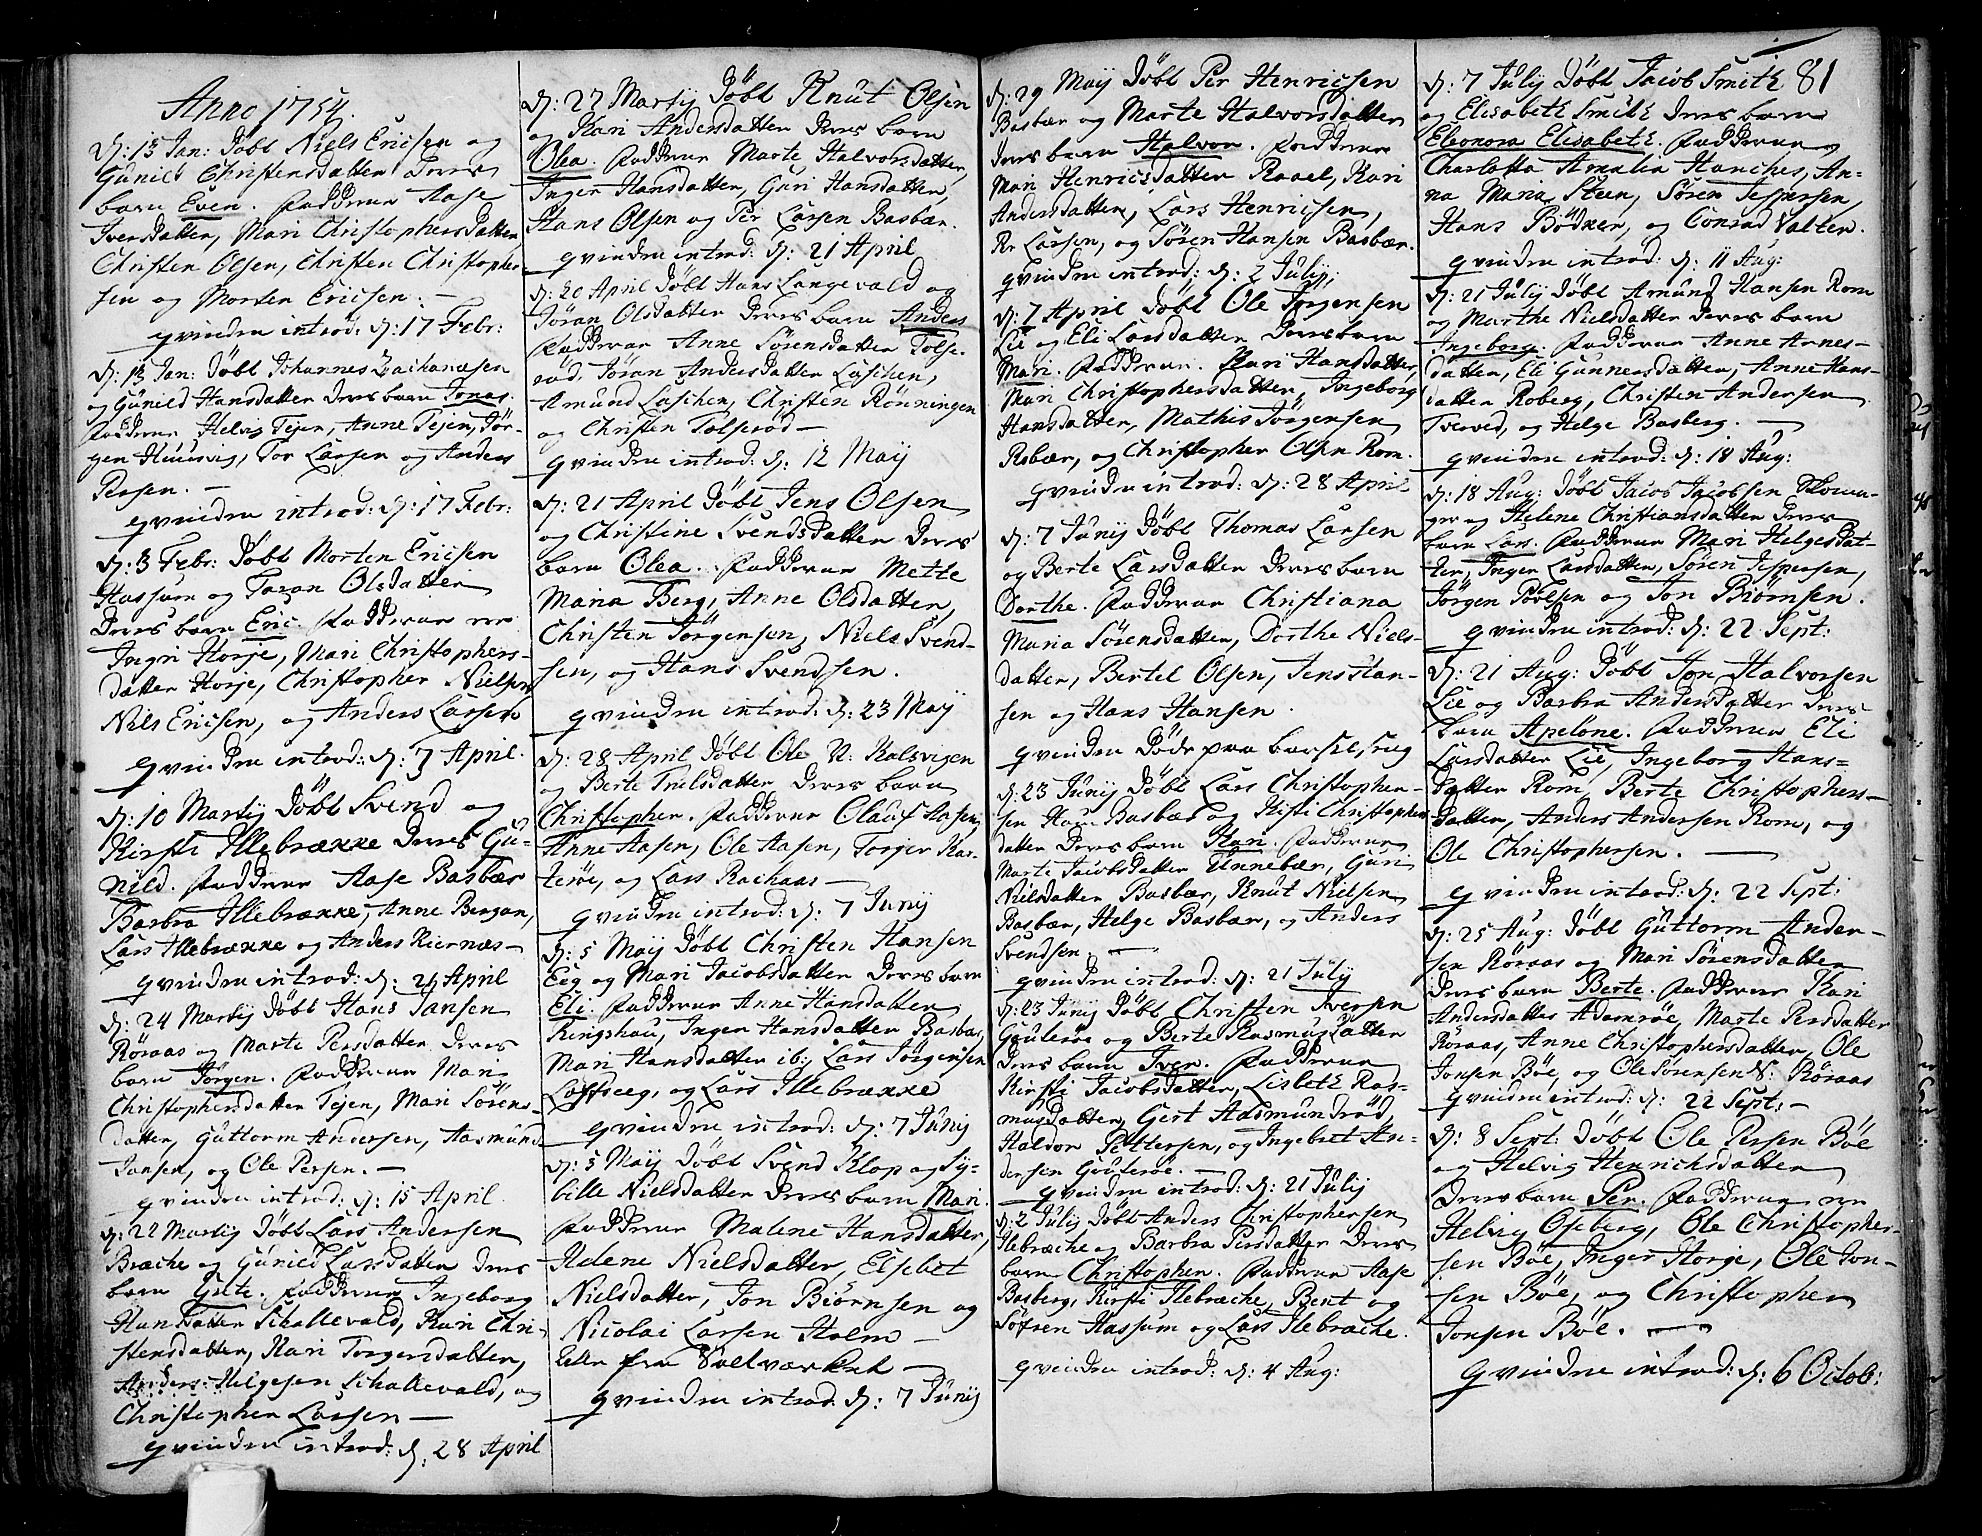 Anno 1754.
D: 13 Jan: Döbt Niels Ericsen og
Gunild Christensdatter Deres
barn Even. Fadderne Aase
Iversdatter, Mari Christophersdatter
Christen Olsen, Christen Christopher-
sen og Morten Ericsen. —
qvinden introd: d: 17 Febr:
D: 13 Jan: Döbt Johannes Zachariasen
og Gunild Hansdatter Deres barn Jonas.
Fadderne Helvig Tejen, Anne Tejen, Jör-
gen Huusvig, Tor Larsen og Anders
Persen. —
qvinden introd: d: 17 Febr:
D: 3 Febr: Döbt Morten Ericsen
Hassum og Taran Olsdatter
Deres barn Eric. Fadderne ere
Ingri Horje, Mari Christophers-
datter Horje, Christopher Nielsen
Nils Ericsen, og Anders Larsen
qvinden introd: d: 7 April.
D: 10 Martij Döbt Svend og
Kirsti Illebrække Deres Gu-
nild. Fadderne Aase Basbær
Barbra Illebrække, Anne Bergan,
Lars Illebrække og Anders Kiernæs —
qvinden introd: d: 21 April
D: 24 Martij Döbt Hans Jansen
Röraas og Marte Persdatter Deres
barn Jörgen. Fadderne Mari
Christophersdatter Tejen, Mari Sörens-
datter, Guttorm Andersen, Aasmund
Jansen, og Ole Persen. —
qvinden introd: d: 15 April
D: 22 Martij Döbt Lars Andersen
Bræche og Gunild Larsdatter Deres
barn Gute. Fadderne Ingeborg
Hansdatter Schallevald, Kari Chri-
stensdatter, Kari Torgersdatter,
Anders Helgesen Schallevald, og
Christopher Larsen —
qvinden introd: d: 28 April
D: 27 Martij Döbt Knut Olsen
og Kari Andersdatter Deres barn
Olea. Fadderne Marte Halvorsdatter,
Inger Hansdatter, Guri Hansdatter,
Hans Olsen og Per Larsen Basbær.
qvinden introd: d: 21 April
D: 20 April Döbt Hans Langevald og
Jöran Olsdatter Deres barn Anders
Fadderne Anne Sörensdatter Tolse-
röd, Jöran Andersdatter Laschen,
Amund Laschen, Christen Rönningen
og Christen Tolseröd —
qvinden introd: d: 12 Maij
D: 21 April Döbt Jens Olsen
og Christine Svendsdatter Deres
barn Olea. Fadderne Mette
Maria Berg, Anne Olsdatter,
Christen Jörgensen, Niels Svend-
sen, og Hans Svendsen.
qvinden introd: d: 23 Maij
D: 28 April Döbt Ole N: Kalsvigen
og Berte Trulsdatter Deres barn
Christopher. Fadderne Olaus Aasen,
Anne Aasen, Ole Aasen, Torger Ras-
teröe, og Lars Rachaas —
qvinden introd: d: 7 Junij
D: 5 Maij Döbt Christen Hansen
Eeg og Mari Jacobsdatter Deres barn
Eli. Fadderne Anne Hansdatter
Ringshau, Inger Hansdatter Basbær,
Mari Hansdatter ib: Lars Jörgensen
Loffseeg, og Lars Illebrække
qvinden introd: d: 7 Junij
D: 5 Maij Döbt Svend Klop og Sy-
bille Nielsdatter Deres barn Mari.
Fadderne Malene Hansdatter,
Helene Nielsdatter, Elsebet
Nielsdatter, Jon Biörnsen og
Nicolai Larsen Holm —
alle fra Valværket —
qvinden introd. d: 7 Junij
D: 29 Maij Döbt Per Henricsen
Basbær og Marte Halvorsdatter
Deres barn Halvor. Fadderne
Mari Henricsdatter Raael, Kari
Andersdatter, Lars Henricsen,
Per Larsen, og Sören Hansen Basbær.
qvinden introd: d: 2 Julij:
D: 7 April Döbt Ole Jörgensen
Lie og Eli Larsdatter Deres barn
Mari. Fadderne. Kari Hansdatter,
Mari Christophersdatter, Ingeborg
Hansdatter, Mathis Jörgensen
Rsbær, og Christopher Olsen Rom.
qvinden introd: d: 28 April
D: 7 Junij Döbt Thomas Larsen
og Berte Larsdatter Deres barn
Dorthe. Fadderne Christiana
Maria Sörensdatter, Dorthe Niels-
datter, Bertel Olsen, Jens Han-
sen og Hans Hansen.
qvinden döde paa barsel seng
D: 23 Junij Döbt Lars Christopher-
sen Haue Basbær og Kisti Christopher-
datter Deres barn Kari. Fadderne
Marte Jacobsdatter Unnebær, Guri
Nielsdatter Basbær, Knut Nielsen
Basbær, Helge Basbær, og Anders
Svendsen. —
qvinden introd: d: 21 July
D: 23 Junij Döbt Christen Iversen
Gouteröe og Berte Rasmusdatter
Deres barn Iver. Fadderne
Kirsti Jacobsdatter, Lisbeth Ras-
musdatter, Gert Aasmundröd,
Haldor Pettersen, og Ingebret An-
dersen Gouteröe. —
qvinden introd: d: 21 Julij
D: 2 Julij Döbt Anders Christophersen
Ilebræche og Barbra Persdatter Deres
barn Christopher. Fadderne Aase
Basberg, Kirsti Ilebræche, Bent og
Söfren Hassum og Lars Ilebræche.
qvinden introd: d: 4 Aug:
81
D: 7 Julij Döbt Jacob Smith
og Elisabeth Smith Deres barn
Eleonora Elisabeth. Fadderne
Charlotta Amalia Hanches, An-
na Maria Steen, Sören Jespersen,
Hans Bödker, og Conrad Valter.
qvinden introd: d: 11 Aug:
D: 21 Julij Döbt Amund Hansen Rom
og Marthe Nielsdatter Deres barn
Ingeborg. Fadderne Anne Arnes-
datter, Eli Gunnersdatter, Anne Hans-
datter Roberg, Christen Andersen
Tverved, og Helge Basberg. —
qvinden introd: d: 18 Aug:
D: 18 Aug: Döbt Jacob Jacobsen Skoma-
ger og Helene Christiansdatter Deres
barn Lars. Fadderne Mari Helgesdat-
ter, Inger Larsdatter, Sören Jespersen,
Jörgen Povelsen og Jon Biörnsen.
qvinden introd: d: 22 Sept:
D: 21 Aug: Döbt Jon Halvorsen
Lie og Barbra Andersdatter Deres
barn Apelone. Fadderne Eli
Larsdatter Lie, Ingeborg Hans-
datter Rom, Berte Christophers-
datter, Anders Andersen Rom, og
Ole Christophersen. —
qvinden introd: d: 22 Sept:
D: 25 Aug: Döbt Guttorm Ander-
sen Röraas og Mari Sörensdatter
Deres barn Berte. Fadderne Kari
Andersdatter Adamröe, Marte Persdatter
Röraas, Anne Christophersdatter, Ole
Jonsen Böe, og Ole Sörensen N: Röraas
qvinden introd: d: 22 Sept: —
D: 8 Sept: Döbt Ole Persen Böe
og Helvig Henrichsdatter
Deres barn Per. Fadderne ere
Helvig Oseberg, Ole Christopher-
sen Böe, Inger Horge, Ole Jon-
sen Böe, og Christopher
Jonsen Böe. —
qvinden introd: d: 6 Octob: